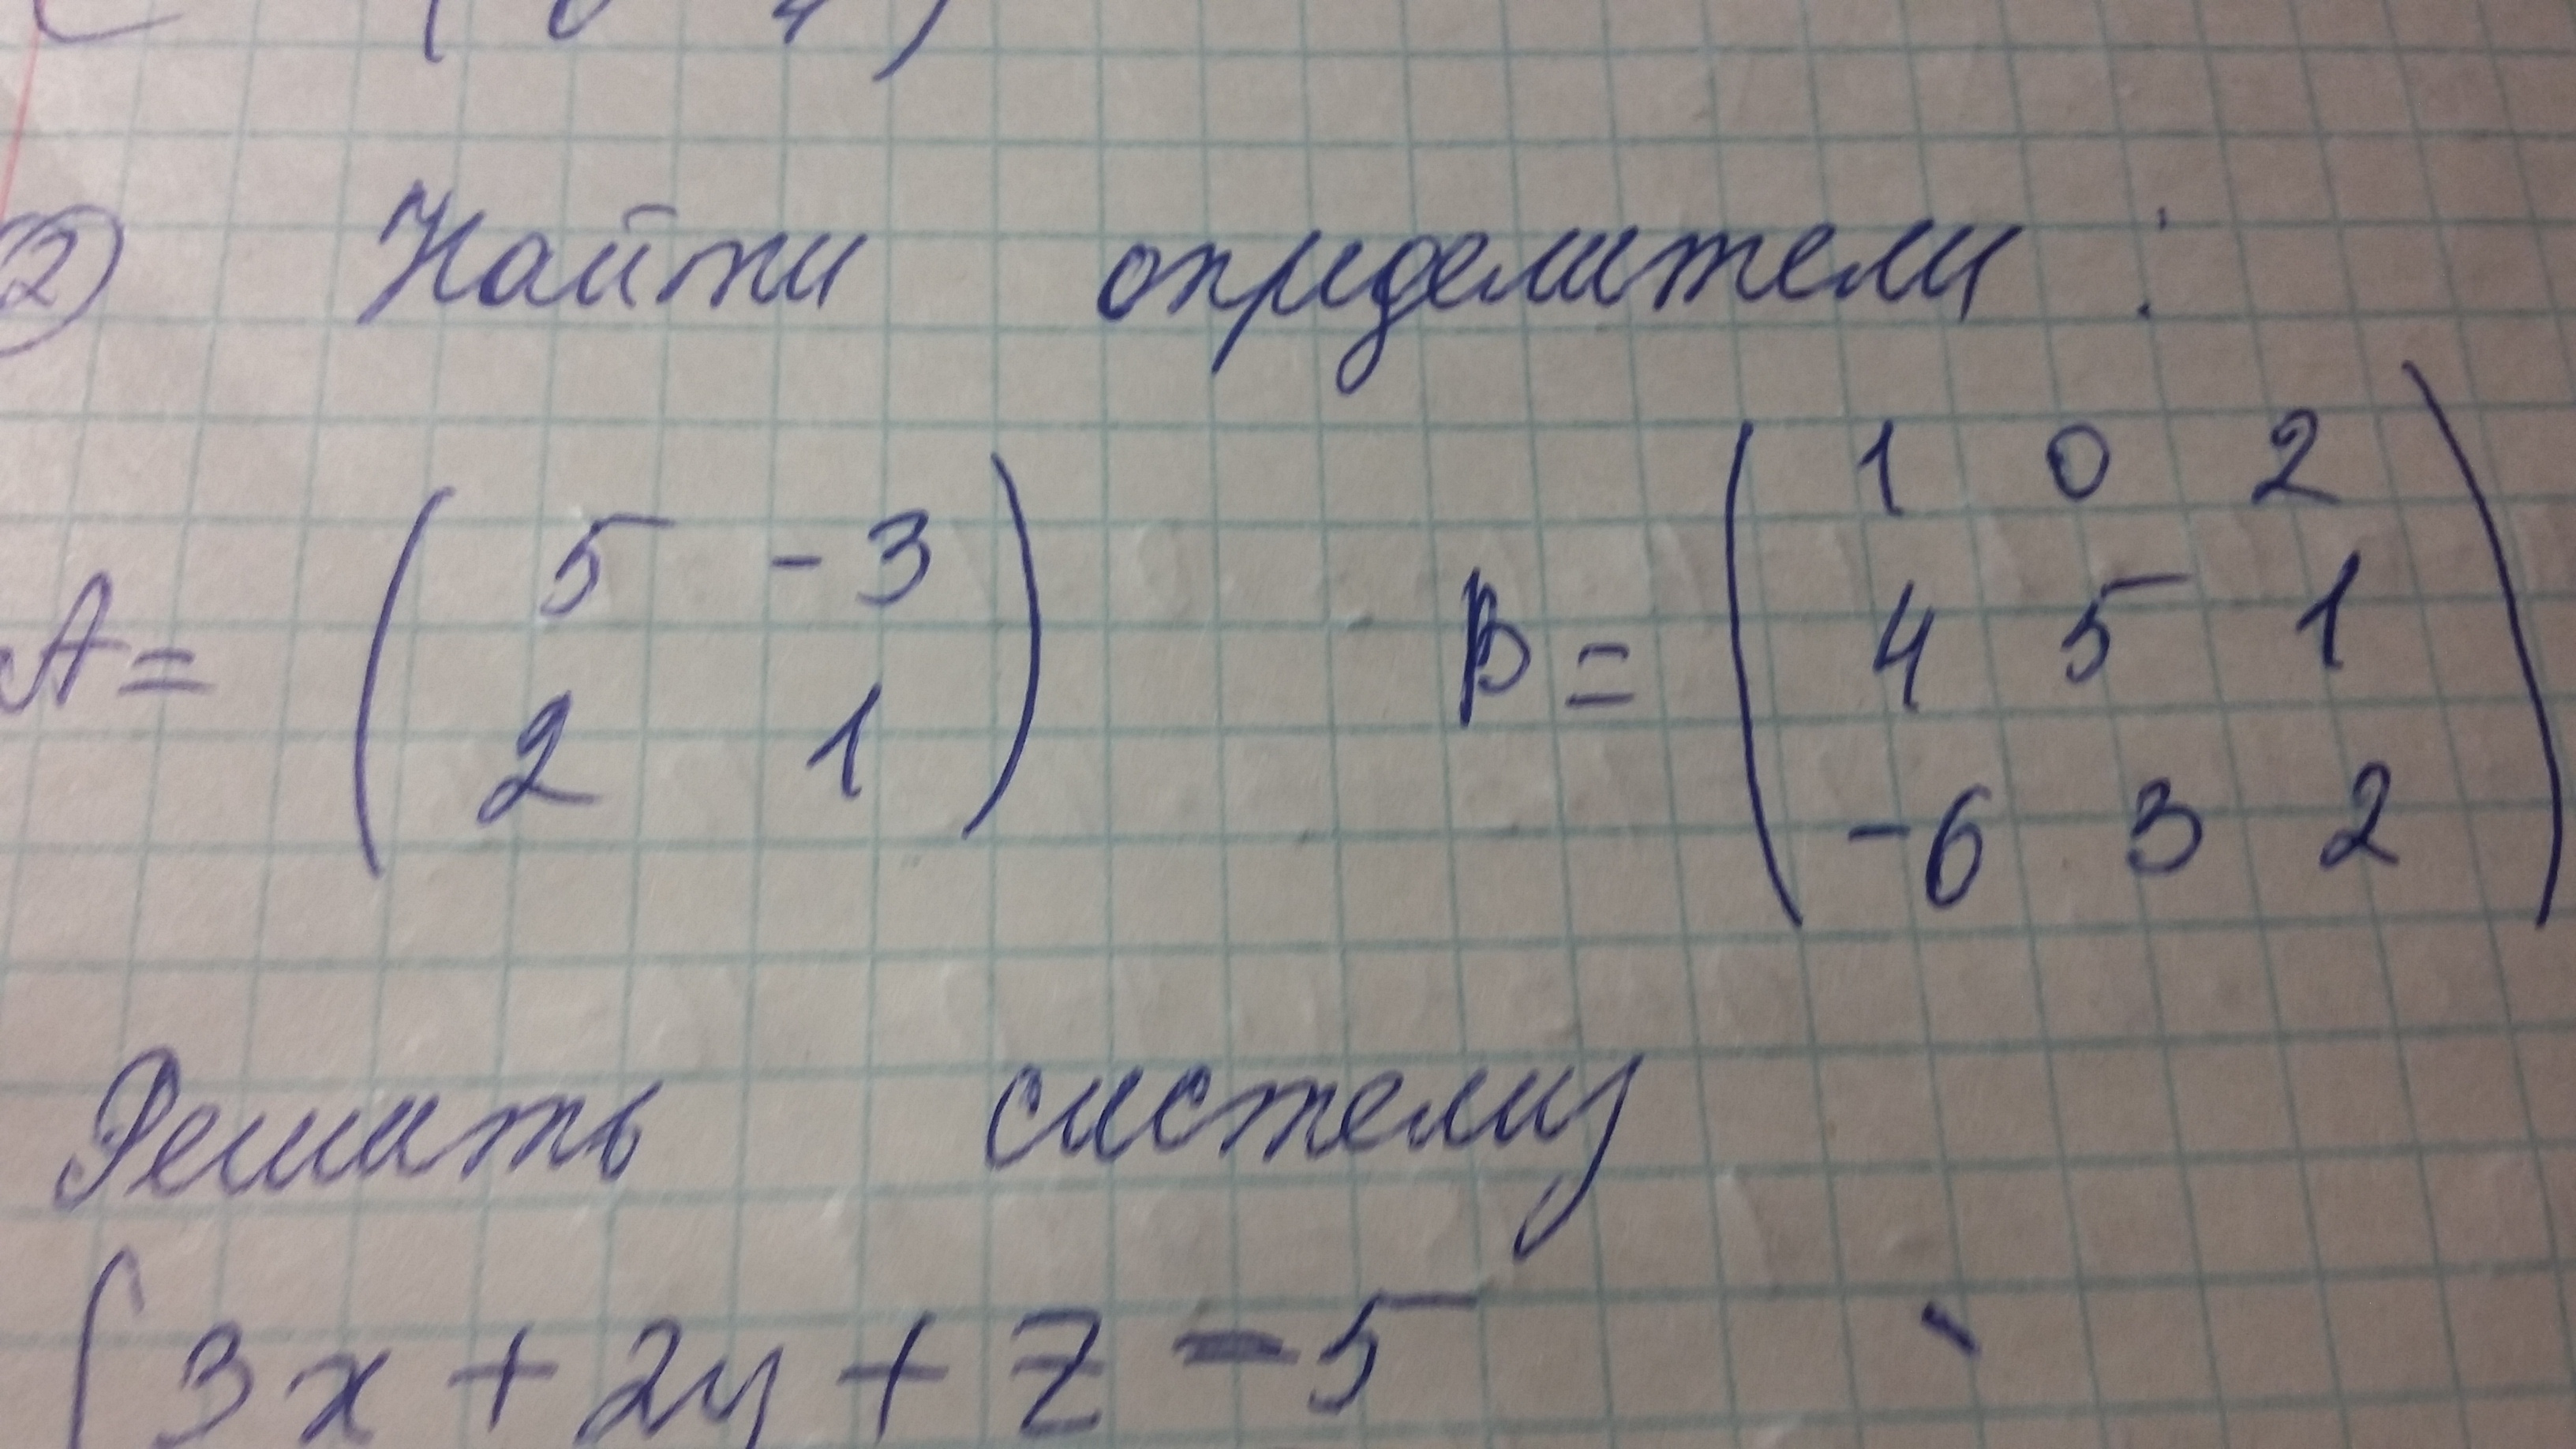 ② Найти определители:
A = ( 5 -3
2 1 )
B = ( 1 0 2
4 5 1
-6 3 2 )
Решить систему
{ 3x + 2y + z = 5